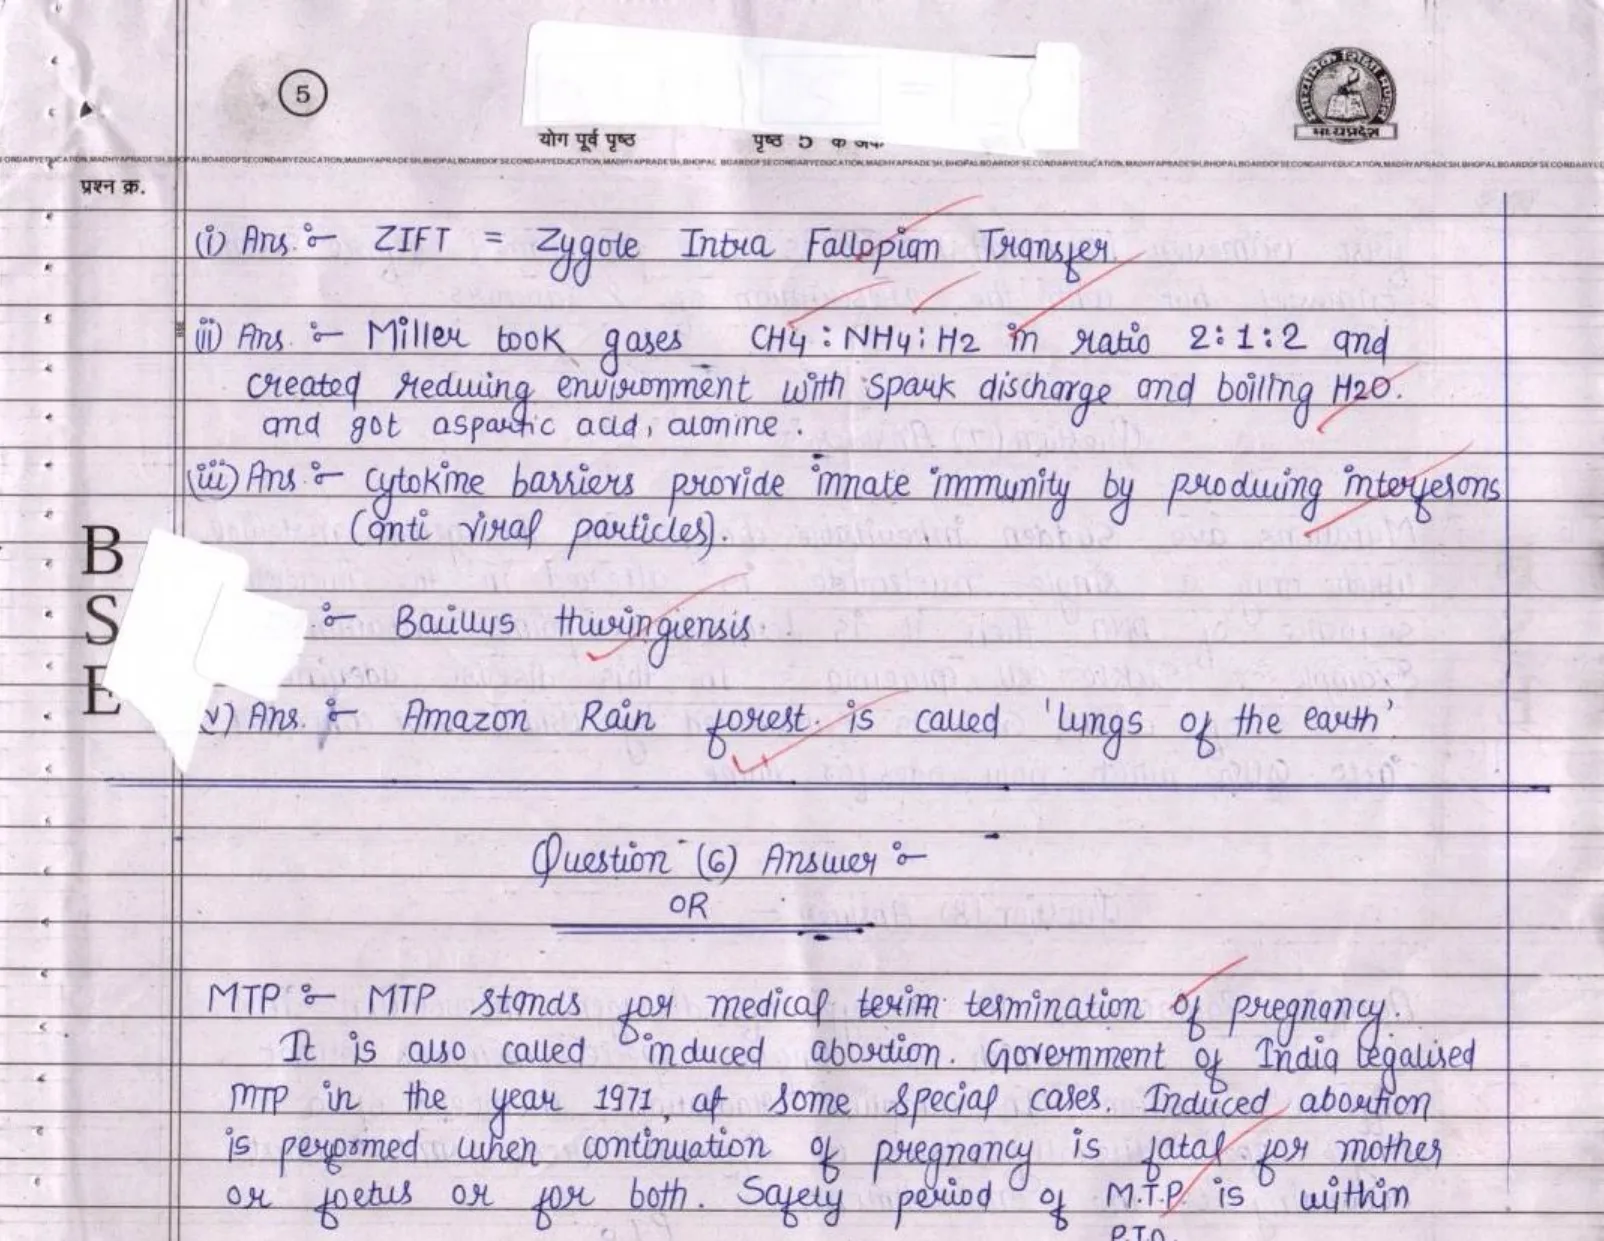 5
योग पूर्व पृष्ठ
पृष्ठ 5 के अंक
माध्यमिक शिक्षा मण्डल
मध्यप्रदेश
BOARD OF SECONDARY EDUCATION, MADHYA PRADESH, BHOPAL
प्रश्न क्र.
(i) Ans. :- ZIFT = Zygote Intra Fallopian Transfer.
ii) Ans. :- Miller took gases CH4 : NH4 : H2 in ratio 2:1:2 and
created reducing environment with spark discharge and boiling H2O.
and got aspartic acid, alonine.
(iii) Ans. :- Cytokine barriers provide innate immunity by producing interferons
(anti viral particles).
B
S
E
:- Bacillus thuringiensis.
v) Ans. :- Amazon Rain forest. is called 'lungs of the earth'
Question (6) Answer :-
OR
MTP :- MTP stands for medical terim termination of pregnancy.
It is also called induced abortion. Government of India legalised
MTP in the year 1971, at some special cases. Induced abortion
is performed when continuation of pregnancy is fatal for mother
or foetus or for both. Safety period of M.T.P. is within
P.T.O.